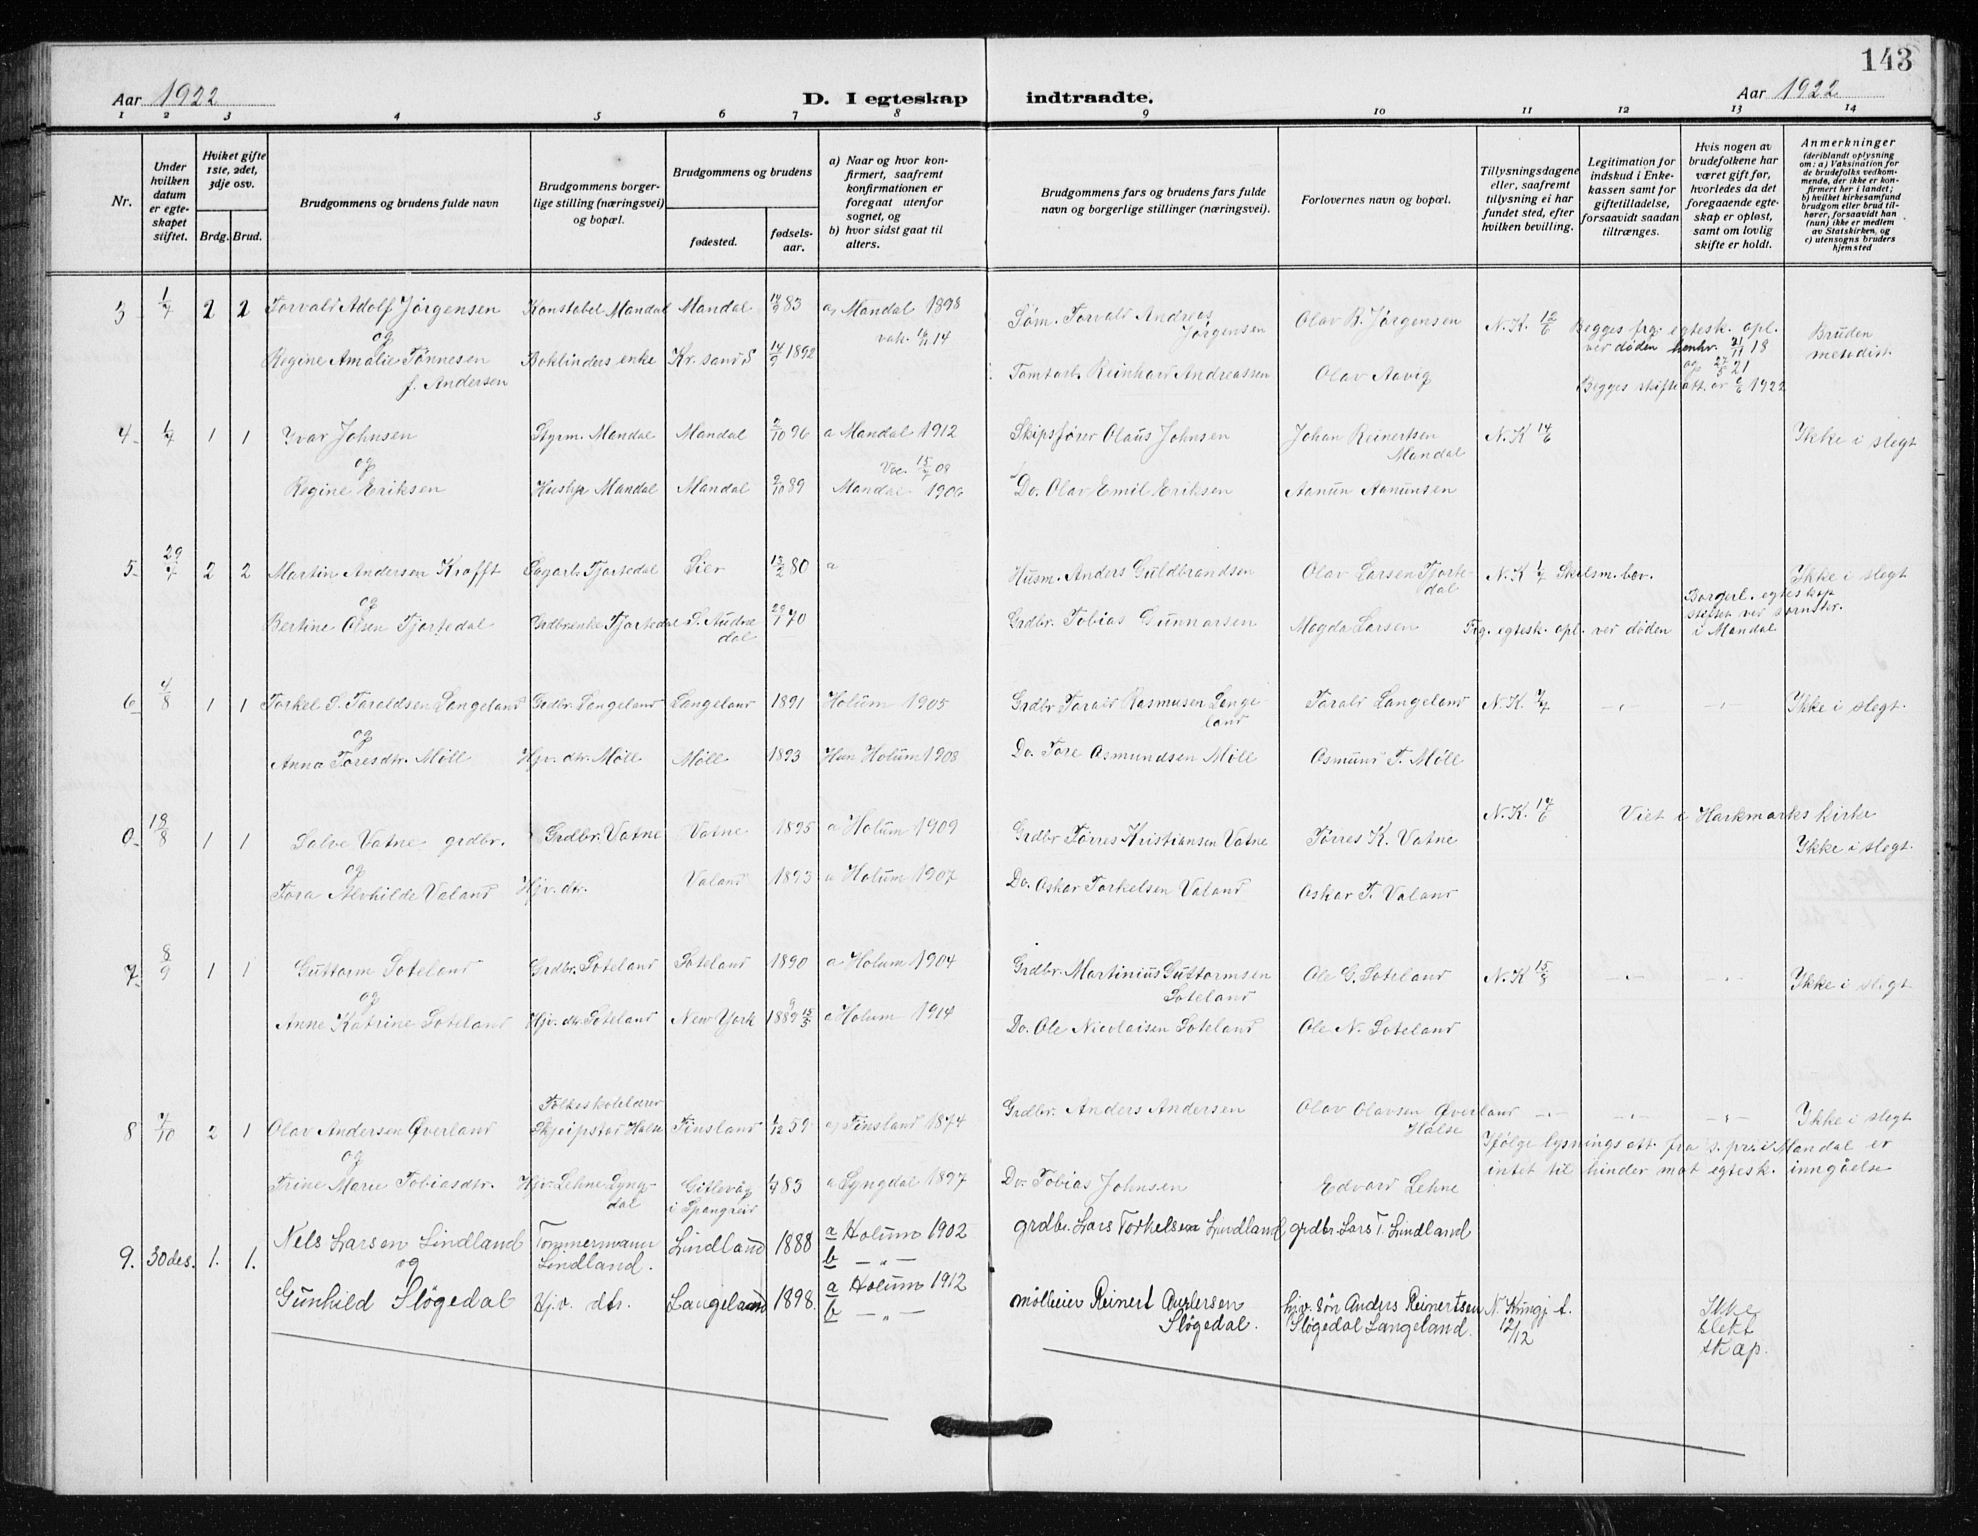 143
Aar 1922
D. I egteskap indtraadte.
Aar 1922
1 2 3 4 5 6 7 8 9 10 11 12 13 14
Nr.
Under hvilken datum er egteskapet stiftet.
Hviket gifte 1ste, 2det, 3dje osv.
Brdg. Brud.
Brudgommens og brudens fulde navn
Brudgommens borgerlige stilling (næringsvei) og bopæl.
Brudgommens og brudens
fødested.
fødselsaar.
a) Naar og hvor konfirmert, saafremt konfirmationen er foregaat utenfor sognet, og
b) hvor sidst gaat til alters.
Brudgommens fars og brudens fars fulde navn og borgerlige stillinger (næringsvei).
Forlovernes navn og bopæl.
Tillysningsdagene eller, saafremt tillysning ei har fundet sted, efter hvilken bevilling.
Legitimation for indskud i Enkekassen samt for giftetilladelse, forsaavidt saadan tiltrænges.
Hvis nogen av brudefolkene har været gift før, hvorledes da det foregaaende egteskap er opløst, samt om lovlig skifte er holdt.
Anmerkninger (deriblandt oplysning om: a) Vaksination for de brudefolks vedkommende, der ikke er konfirmert her i landet; b) hvilket kirkesamfund brudgom eller brud tilhører, forsaavidt han (hun) ikke er medlem av Statskirken, og c) utensogns bruders hjemsted
3 1/7 2 2 Torvald Adolf Jørgensen Konstabel Mandal Mandal 83 a, Mandal 1898 Søm. Torvald Andreas Jørgensen Olav B. Jørgensen N.K. 12/6 Begges frg. egtesk. opl. ved døden henhv. 21/11 18 Bruden metodist.
og
Regine Amalie Tønnesen f. Andersen Boktinders enke Kr.sand S 14/9 1892 vak. 14 Tomtarb. Reinhard Andreassen Olav Aavig og 27/5 21
Begges skifteatt. av 6/6 1922
4 1/7 1 1 Yvar Johnsen Styrm. Mandal Mandal 2/10 96 a Mandal 1912 Skipsfører Olaus Johnsen Johan Reinertsen Mandal N.K 14/6 Ikke i slegt
og
Regine Eriksen Hushj. Mandal Mandal 2/10 89 Vac. 15/7 08 Mandal 1906 Do. Olav Emil Eriksen Aanun Aanunsen
5 29/7 2 2 Martin Andersen Krafft Sagarb. Tjortedal Lier 13/2 80 a Husm. Anders Guldbrandsen Olav Larsen Tjortedal N.K 1/7 Skilsm. bev. Ikke i slegt
og
Bertine Olsen Tjortedal Grdbrenke Tjortedal S. Audnedal 29/7 70 Grdbr. Tobias Gunnarsen Magda Larsen Frg. egtesk. opl. ved døden Borgerl. egteskap stiftet ved sornskr. i Mandal
6 4/8 1 1 Torkel S. Taraldsen Langeland Grdbr. Langeland Langeland 1891 Holum 1905 Grdbr Tarald Rasmusen Langeland Tarald Langeland N.K. 2/7 -"- -"- Ikke i slegt.
og
Anna Toresdtr. Møll Hjv. dtr. Møll Møll 1893 Hun Holum 1908 Do. Tore Osmundsen Møll Osmund T. Møll
0 18/8 1 1 Salve Vatne grdbr. Grdbr. Vatne Vatne 1895 a Holum 1909 Grdbr Tørres Kristiansen Vatne Tørres K. Vatne N.K. 14/6 Viet i Harkmarks kirke Ikke i slegt.
og
Tora Alvhilde Valand Hjv. dtr. Valand 1893 a Holum 1907 Do. Oskar Torkelsen Valand Oskar T. Valand
7 8/9 1 1 Guttorm Soteland Grdbr. Soteland Soteland 1890 a Holum 1904 Grdbr. Martinius Guttormsen Soteland Ole G. Soteland N.K 15/8 -"- -"- Ikke i slegt
og
Anne Katrine Soteland Hjv. dtr. Soteland New York 1889 15/3 a Holum 1914 Do. Ole Nicolaisen Soteland Ole N. Soteland
8 7/10 2 1 Olav Andersen Øverland Folkeskolelærer Skjeipstad Halse Finsland 1/12 59 a, Finsland 1874 Grdbr. Anders Andersen Olav Olavsen Øverland Halse -"- -"- -"- Ikke i slegt
og
Trine Marie Tobiasdtr. Hjv. Lehne Lyngdal Gitlevåg i Spangreid 1/7 83 a Lyngdal 1897 Do. Tobias Johnsen Edvard Lehne Ifølge lysningsatt. fra s. pr. i Mandal er intet til hinder mot egtesk. inngåelse
9. 30 des. 1. 1. Nels Larsen Lindland Tømmermann Lindland. Lindland 1888 a Holum 1902 b -"- grdbr. Lars Torkelsen Lindland grdbr. Lars T. Lindland
og
Gunhild Sløgedal Hjv. dtr. Langeland 1898. a Holum 1912 b -"- mølleeier Reinert Andersen Sløgedal. hjv. søn Anders Reinertsen Sløgedal Langeland. N. Kungj. f. 12/12 Ikke slektskap.